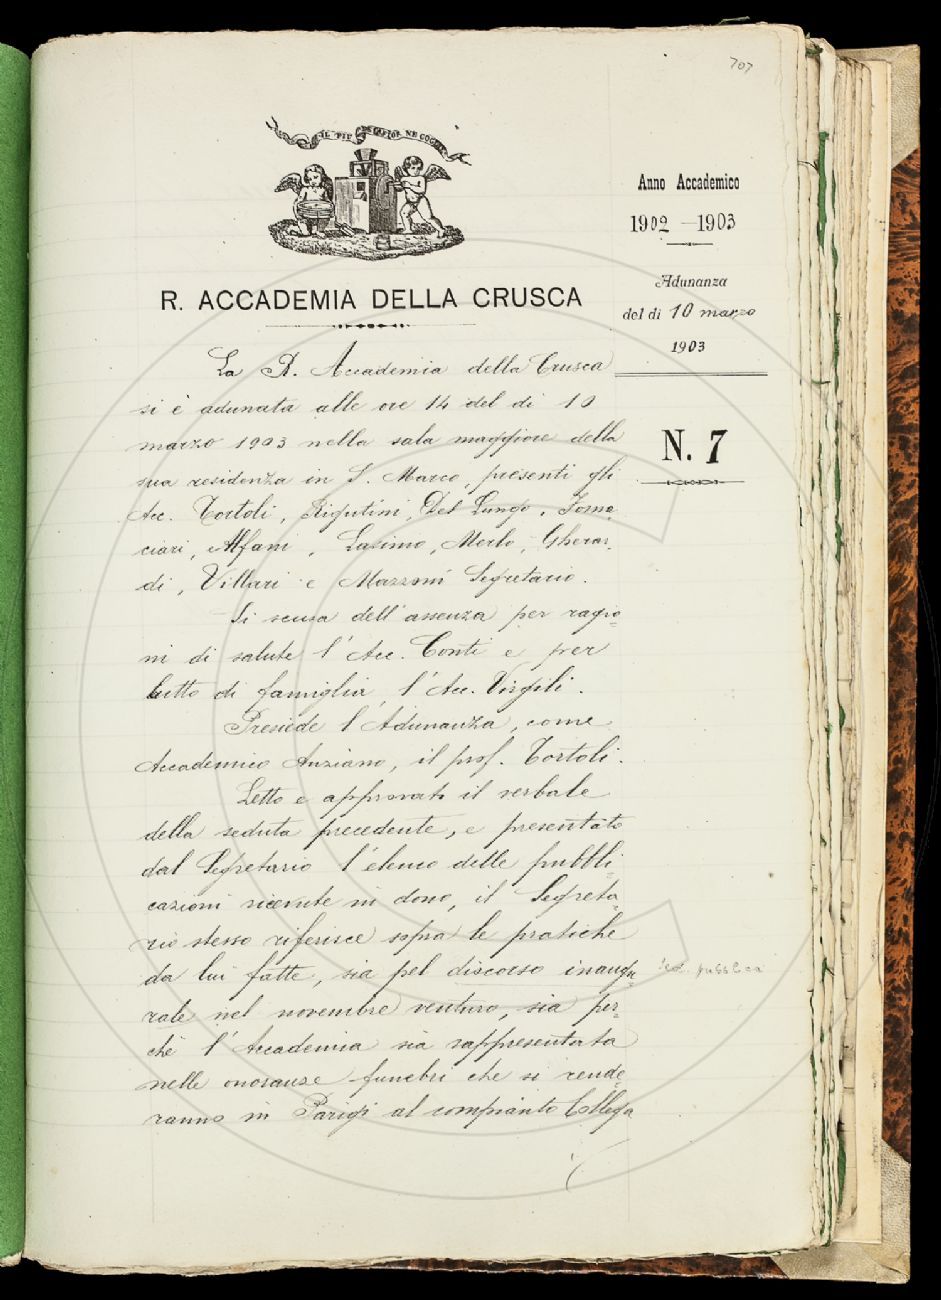 707
IL PIÙ BEL FIOR NE COGLIE
Anno Accademico
1902 - 1903
Adunanza
del dì 10 marzo
1903
N. 7
R. ACCADEMIA DELLA CRUSCA
La R. Accademia della Crusca
si è adunata alle ore 14 del dì 10
marzo 1903 nella sala maggiore della
sua residenza in S. Marco, presenti gli
Acc. Tortoli, Rigutini, Del Lungo, Torna
ciari, Alfani, Lasinio, Merlo, Gherar-
di, Villari e Mazzoni Segretario.
Si scusa dell'assenza per ragio-
ni di salute l'Acc. Conti e per
lutto di famiglia l'Acc. Virgili.
Presiede l'Adunanza, come
Accademico Anziano, il prof. Tortoli.
Letto e approvato il verbale
della seduta precedente, e presentato
dal Segretario l'elenco delle pubbli-
cazioni ricevute in dono, il Segreta-
rio stesso riferisce sopra le pratiche
da lui fatte, sia pel discorso inaugu-
rale nel novembre venturo, sia per-
chè l'Accademia sia rappresentata
nelle onoranze funebri che si rende-
ranno in Parigi al compianto Collega
pubblica